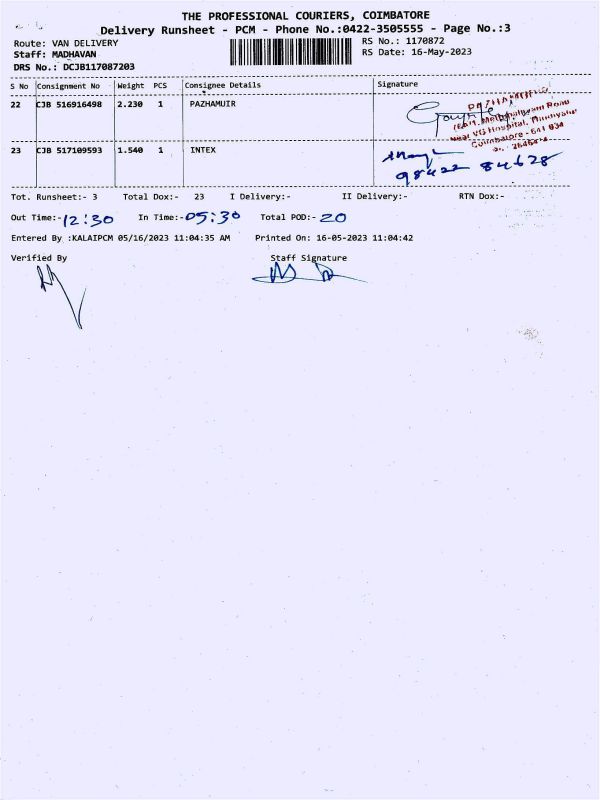 THE PROFESSIONAL COURIERS, COIMBATORE
Delivery Runsheet - PCM - Phone No.:0422-3505555 - Page No.:3
Route: VAN DELIVERY
RS No.: 1170872
Staff: MADHAVAN
RS Date: 16-May-2023
DRS No.: DCJB117087203
S No Consignment No Weight PCS Consignee Details Signature
22 CJB 516916498 2.230 1 PAZHAMUIR
Near VG Hospital,
Coimbatore - 641 034
23 CJB 517109593 1.540 1 INTEX
98422 84628
Tot. Runsheet:- 3 Total Dox:- 23 I Delivery:- II Delivery:- RTN Dox:-
Out Time:- 12:30 In Time:- 05:30 Total POD:- 20
Entered By :KALAIPCM 05/16/2023 11:04:35 AM Printed On: 16-05-2023 11:04:42
Verified By Staff Signature